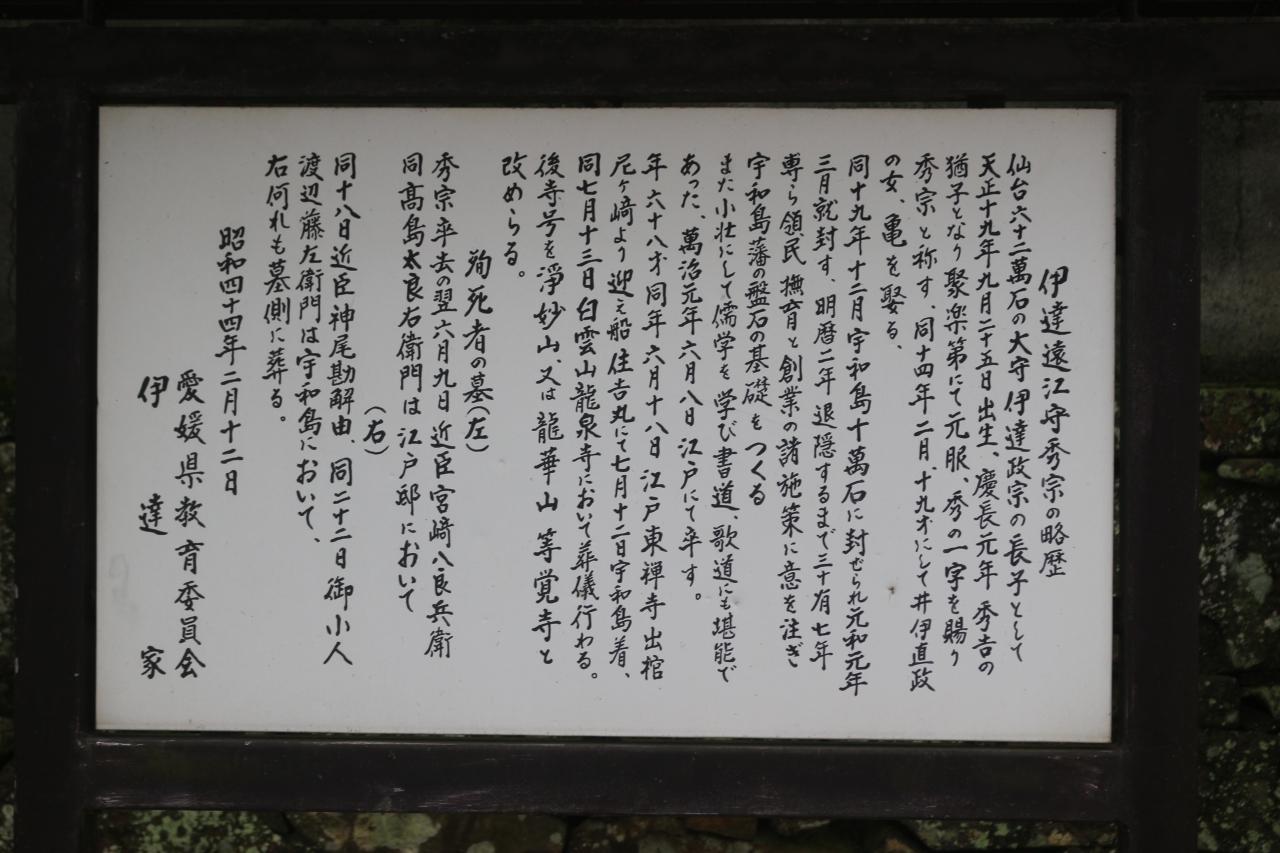 伊達遠江守秀宗の略歴
仙台六十二萬石の大守伊達政宗の長子として
天正十九年九月二十五日出生、慶長元年秀吉の
猶子となり聚楽第にて元服、秀の一字を賜り
秀宗と称す、同十四年二月、十九才にして井伊直政
の女、亀を娶る、
同十九年十二月宇和島十萬石に封ぜられ元和元年
三月就封す、明暦二年退隠するまで三十有七年
専ら領民撫育と創業の諸施策に意を注ぎ
宇和島藩の盤石の基礎をつくる
また小壮にして儒学を学び書道、歌道にも堪能で
あった、萬治元年六月八日江戸にて卒す。
年六十八才同年六月十八日江戸東禅寺出棺
尼ヶ﨑より迎え船住吉丸にて七月十二日宇和島着、
同七月十三日白雲山龍泉寺において葬儀行わる。
後寺号を淨妙山、又は龍華山等覚寺と
改めらる。
殉死者の墓(左)
秀宗卒去の翌六月九日近臣宮﨑八良兵衛
同高島太良右衛門は江戸邸において
(右)
同十八日近臣神尾勘解由、同二十二日御小人
渡辺藤左衛門は宇和島において、
右何れも墓側に葬る。
昭和四十四年二月十二日
愛媛県教育委員会
伊達家